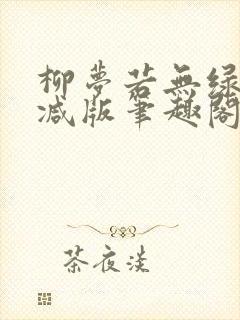 柳梦若无绿
减版笔趣阁
茶夜淡